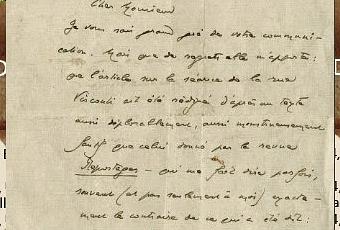 Cher Monsieur
Je vous sais grand gré de votre communi-
cation. Mais que de regrets elle m'apporte :
que l'article sur la séance de la rue
Visconti ait été rédigé d'après un texte
aussi déplorablement, aussi monstrueusement
faussé que celui donné par la revue
Reportages — qui me fait dire parfois,
souvent (et pas seulement à moi) exacte-
ment le contraire de ce qui a été dit :